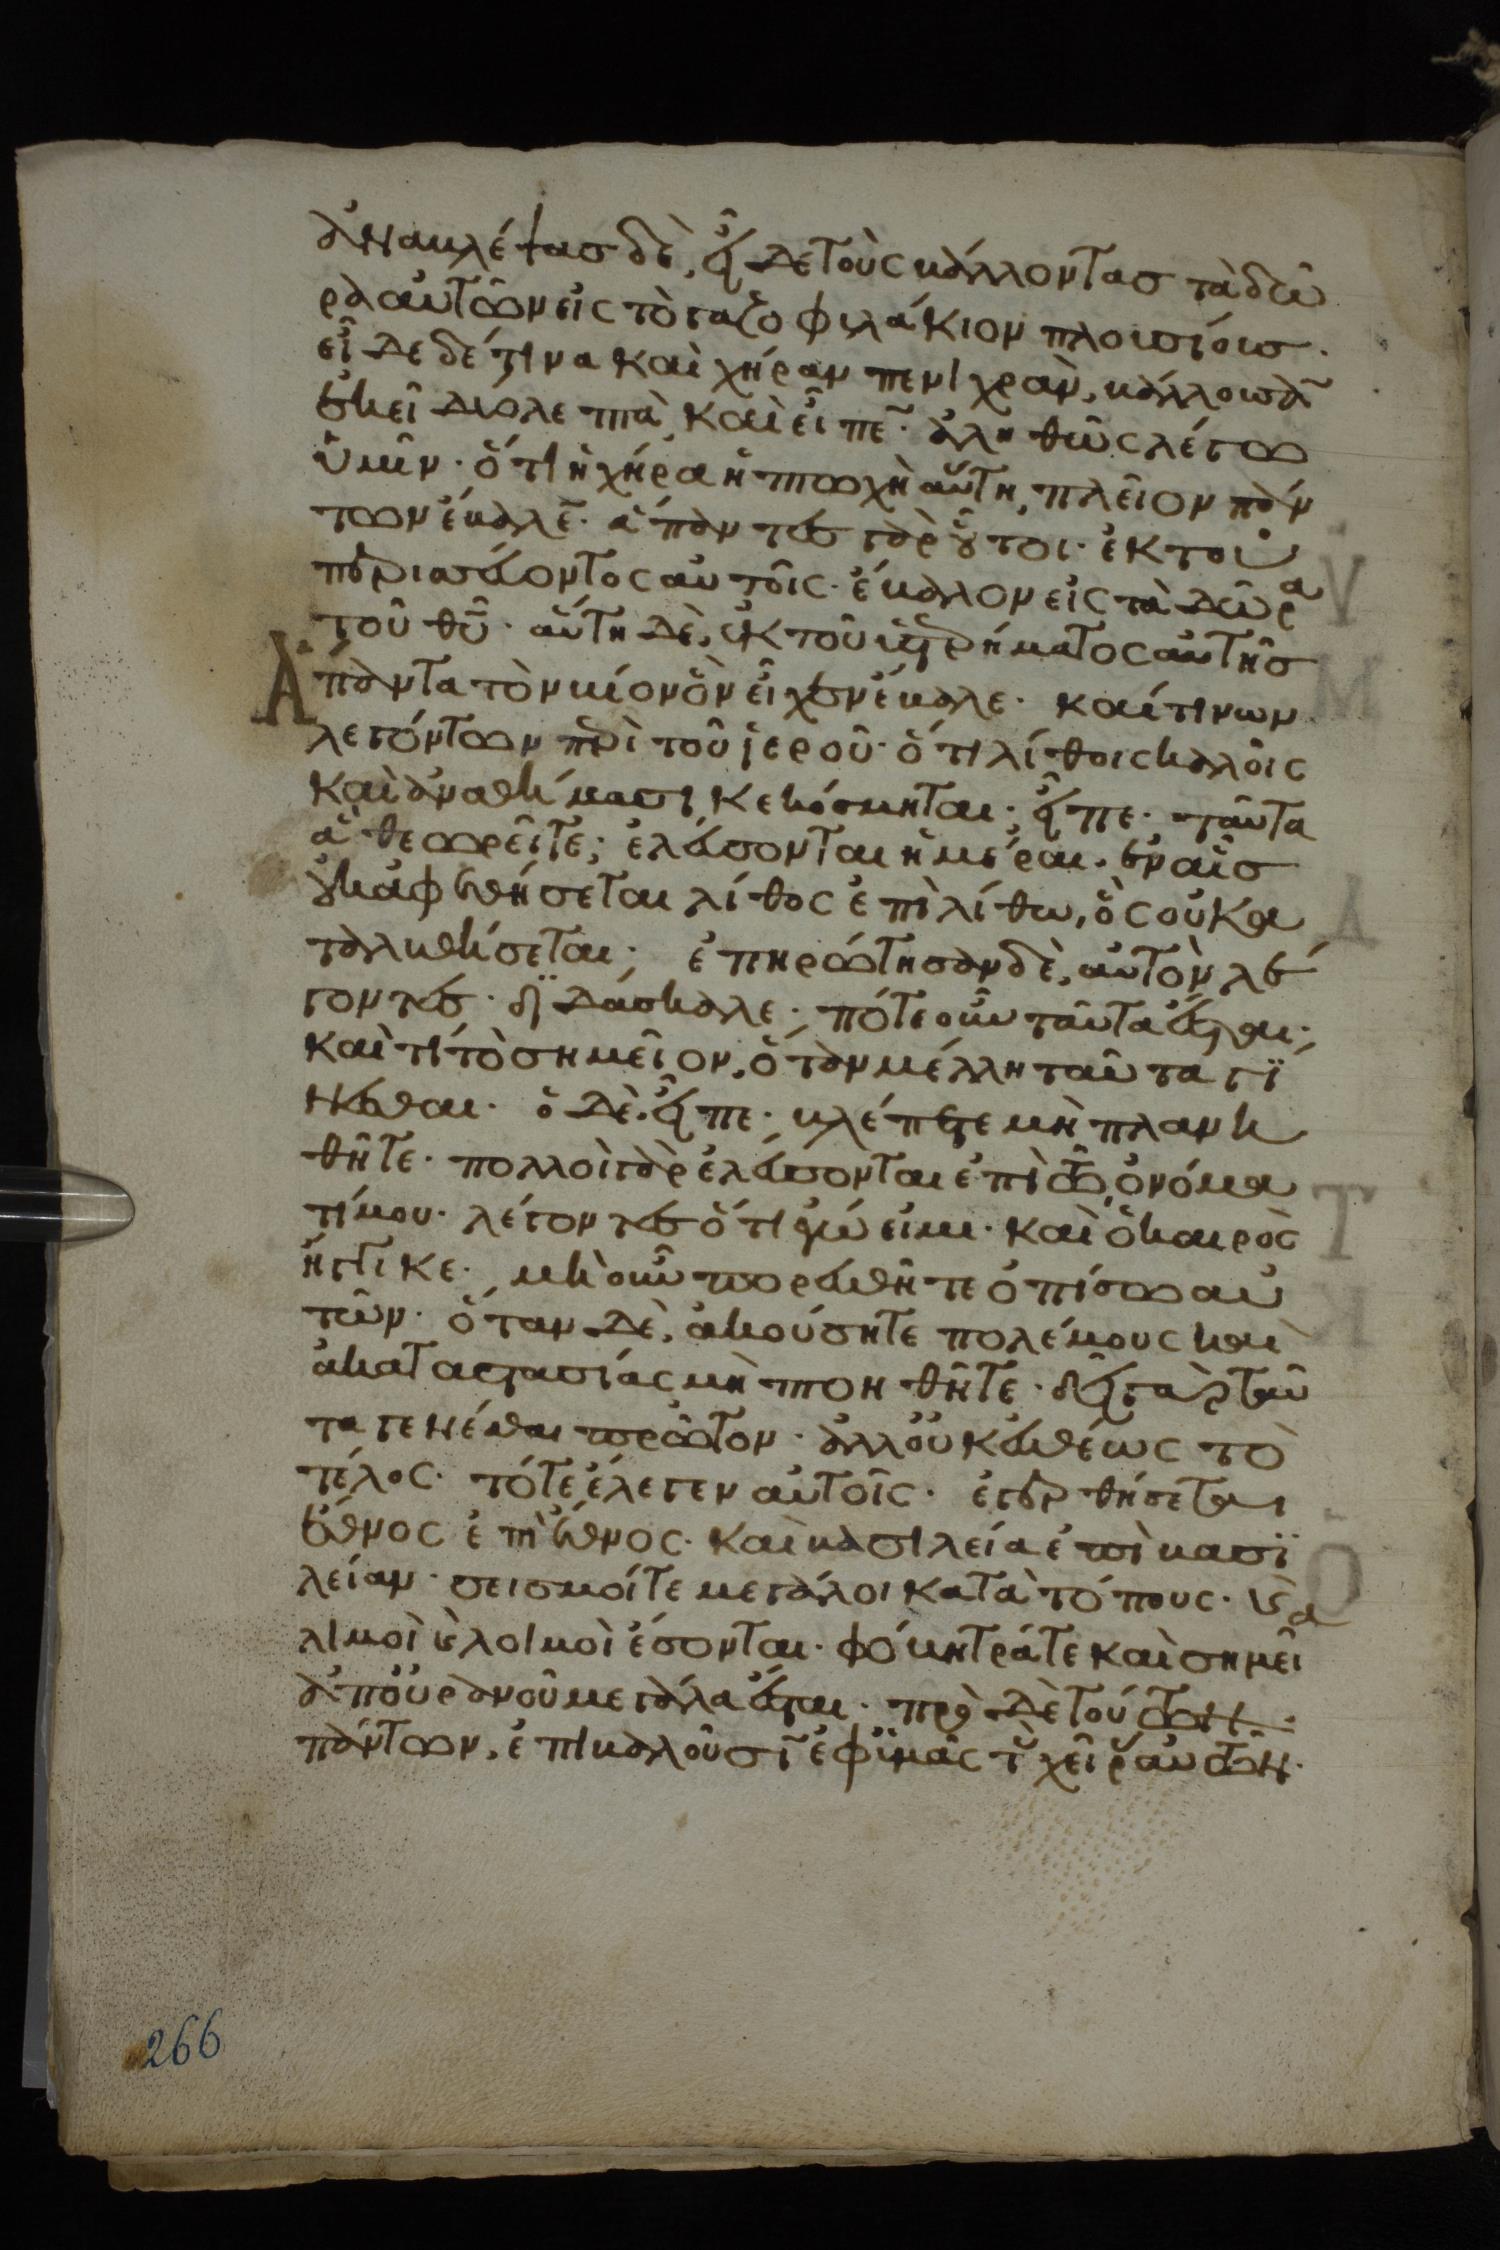 ἀναβλέψας δὲ, εἶδε τοὺς βάλλοντας τὰ δῶ
ρα αὐτῶν εἰς τὸ γαζοφιλάκιον πλουσίους.
εἶδε δέ τινα καὶ χήραν πενιχρὰν, βάλλουσαν
ἐκεῖ δύο λεπτὰ, καὶ εἶπεν· ἀληθῶς λέγω
ὑμῖν· ὅτι ἡ χήρα ἡ πτωχὴ αὕτη, πλεῖον πάν
των ἔβαλεν· ἅπαντες γὰρ οὗτοι· ἐκ τοῦ
περισσεύοντος αὐτοῖς· ἔβαλον εἰς τὰ δῶρα
τοῦ θῦ· αὕτη δὲ, ἐκ τοῦ ὑστερήματος αὐτῆς
ἅπαντα τὸν βίον ὃν εἶχεν ἔβαλε· καί τινων
λεγόντων περὶ τοῦ ἱεροῦ· ὅτι λίθοις καλοῖς
καὶ ἀναθήμασι κεκόσμηται· εἶπε· ταῦτα
ἃ θεωρεῖτε; ἐλεύσονται ἡμέραι· ἐν αἷς
οὐκ ἀφεθήσεται λίθος ἐπὶ λίθω, ὃς οὐ κα
ταλυθήσεται; ἐπηρώτησαν δὲ, αὐτὸν λέ
γοντες· διδάσκαλε; πότε οὖν ταῦτα ἔσται;
καὶ τί τὸ σημεῖον, ὅταν μέλλη ταῦτα γί
νεσθαι· ὁ δὲ εἶπε· βλέπετε μὴ πλανη
θῆτε· πολλοὶ γὰρ ἐλεύσονται ἐπὶ τῶ ὀνόμα
τί μου· λέγοντες ὅτι ἐγώ εἰμι· καὶ ὁ καιρὸς
ἤγγικε· μὴ οὖν πορευθῆτε ὀπίσω αὐ
τῶν· ὅταν δὲ, ἀκούσητε πολέμους καὶ
ἀκαταστασίας μὴ πτοηθῆτε· δεῖ γὰρ ταῦ
τα γενέσθαι πρῶτον· ἀλλ' οὐκ εὐθέως τὸ
τέλος· τότε ἔλεγεν αὐτοῖς· ἐγερθήσεται
ἔθνος ἐπὶ ἔθνος· καὶ βασιλεία ἐπὶ βασι
λείαν· σεισμοί τε μεγάλοι κατὰ τόπους· καὶ
λιμοὶ καὶ λοιμοὶ ἔσονται· φόβητρά τε καὶ σημεῖα
ἀπ' οὐρανοῦ μεγάλα ἔσται· πρὸ δὲ τούτων
πάντων, ἐπιβαλοῦσιν ἐφ' ὑμᾶς τὰς χεῖρας αὐτῶν·
266